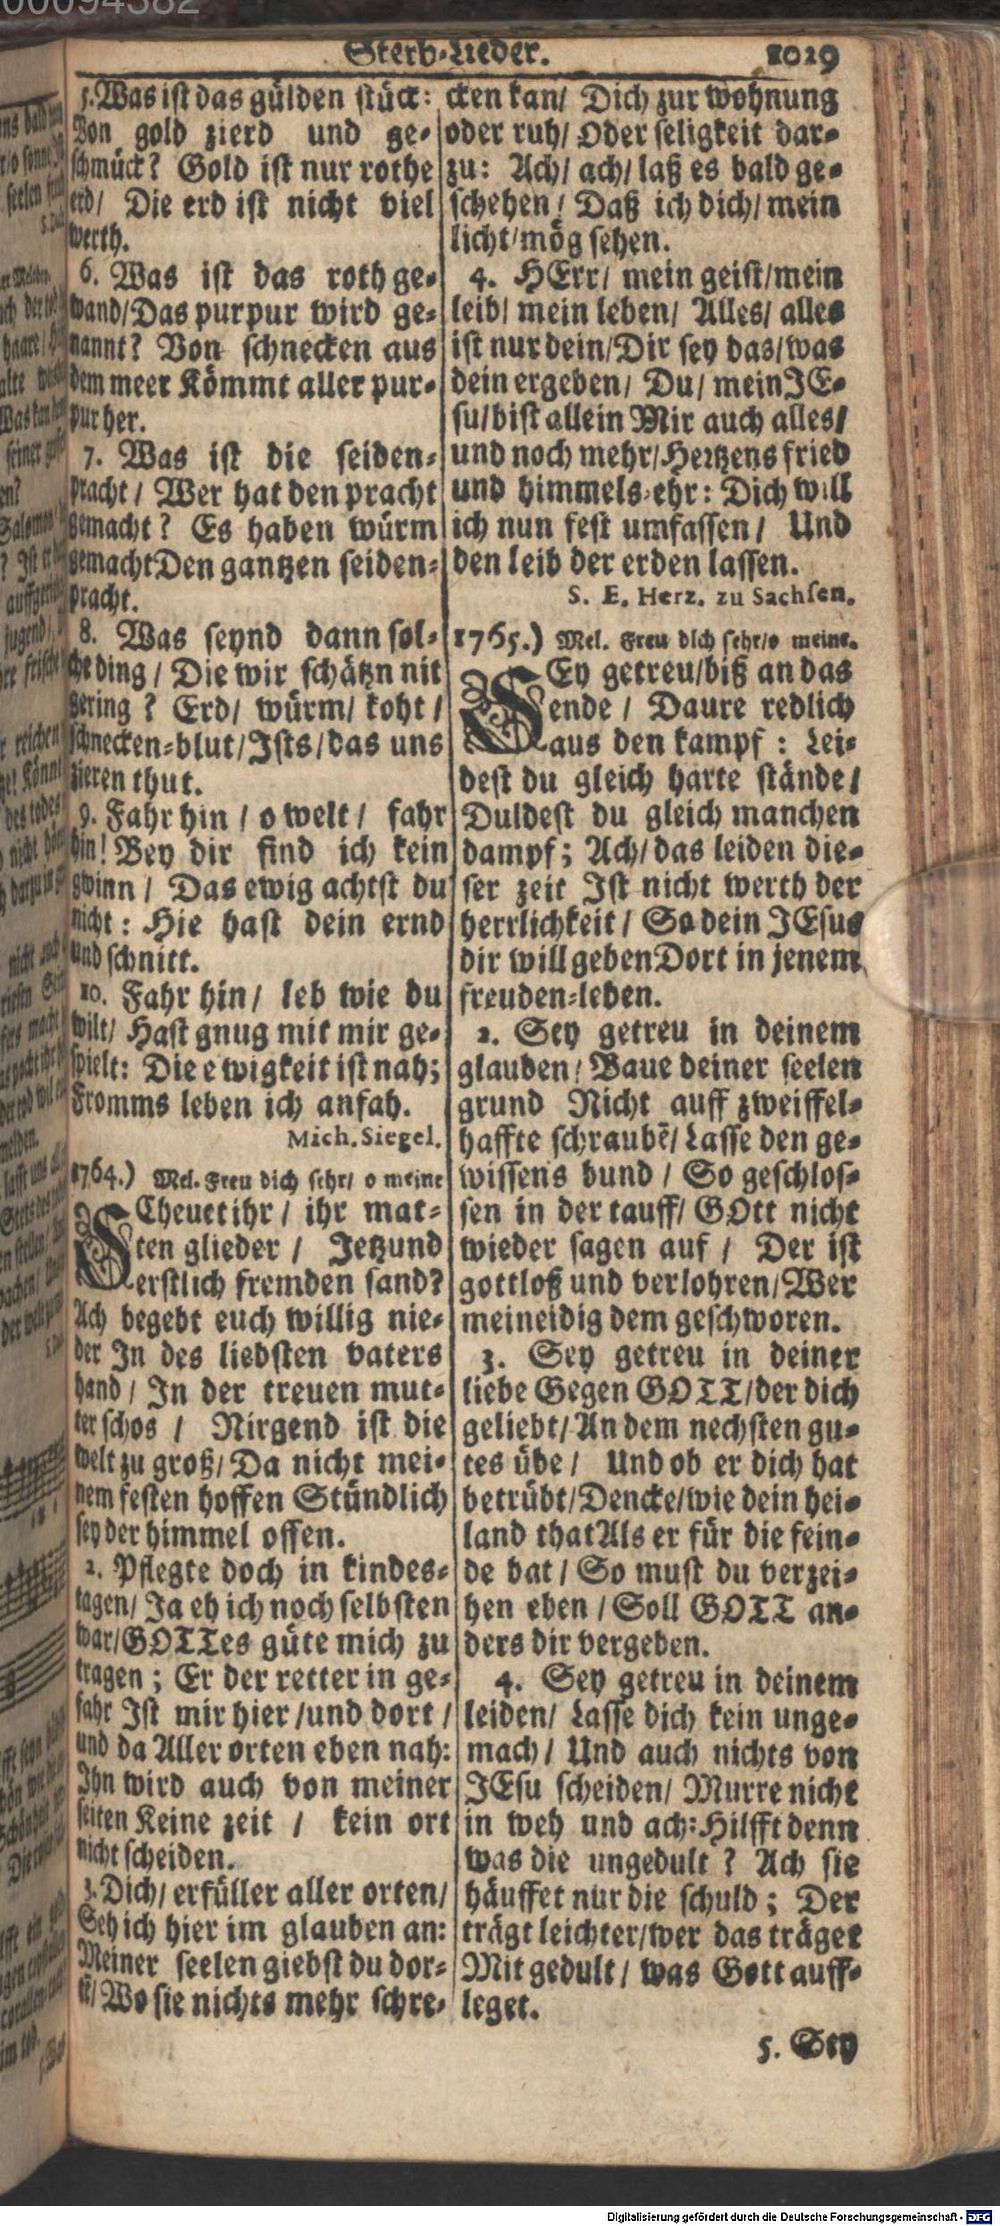 00094382
Sterb-Lieder. 1019
5. Was ist das gülden stück:
Von gold zierd und ge-
schmückt? Gold ist nur rothe
erd/ Die erd ist nicht viel
werth.
6. Was ist das roth ge-
wand/ Das purpur wird ge-
nannt? Von schnecken aus
dem meer Kömmt aller pur-
pur her.
7. Was ist die seiden-
pracht / Wer hat den pracht
gemacht? Es haben würm
gemacht Den gantzen seiden-
pracht.
8. Was seynd dann sol-
che ding / Die wir schätzn nit
gering ? Erd/ würm/ koht /
schnecken-blut/ Ists/ das uns
zieren thut.
9. Fahr hin / o welt / fahr
hin! Bey dir find ich kein
gwinn / Das ewig achtst du
nicht: Hie hast dein ernd
und schnitt.
10. Fahr hin/ leb wie du
wilt/ Hast gnug mit mir ge-
spielt: Die ewigkeit ist nah;
Fromms leben ich anfah.
Mich. Siegel.
1764.) Mel. Freu dich sehr/ o meine
SCheuet ihr / ihr mat-
ten glieder / Jetzund
erstlich fremden sand?
Ach begebt euch willig nie-
der In des liebsten vaters
hand / In der treuen mut-
ter schos / Nirgend ist die
welt zu groß/ Da nicht mei-
nem festen hoffen Stündlich
sey der himmel offen.
2. Pflegte doch in kindes-
tagen/ Ja eh ich noch selbsten
war/ GOTTes güte mich zu
tragen ; Er der retter in ge-
fahr Ist mir hier /und dort /
und da Aller orten eben nah:
Ihn wird auch von meiner
seiten Keine zeit / kein ort
nicht scheiden.
3. Dich/ erfüller aller orten/
Seh ich hier im glauben an:
Meiner seelen giebst du dor-
te/ Wo sie nichts mehr schre-
cken kan/ Dich zur wohnung
oder ruh/ Oder seligkeit dar-
zu: Ach/ ach/ laß es bald ge-
schehen / Daß ich dich/ mein
licht/ mög sehen.
4. HErr/ mein geist/ mein
leib/ mein leben/ Alles/ alles
ist nur dein/ Dir sey das/ was
dein ergeben/ Du/ mein JE-
su/ bist allein Mir auch alles/
und noch mehr/ Hertzens fried
und himmels-ehr: Dich will
ich nun fest umfassen / Und
den leib der erden lassen.
S. E. Herz. zu Sachsen.
1765.) Mel. Freu dich sehr/ o meine.
SEy getreu/ biß an das
ende / Daure redlich
aus den kampf : Lei-
dest du gleich harte stände/
Duldest du gleich manchen
dampf; Ach/ das leiden die-
ser zeit Ist nicht werth der
herrlichkeit / So dein JEsus
dir will geben Dort in jenem
freuden-leben.
2. Sey getreu in deinem
glauben/ Baue deiner seelen
grund Nicht auff zweiffel-
haffte schraubē/ Lasse den ge-
wissens bund / So geschlos-
sen in der tauff/ GOtt nicht
wieder sagen auf / Der ist
gottloß und verlohren/ Wer
meineidig dem geschworen.
3. Sey getreu in deiner
liebe Gegen GOTT/ der dich
geliebt/ An dem nechsten gu-
tes übe / Und ob er dich hat
betrübt/ Dencke/ wie dein hei-
land that Als er für die fein-
de bat / So must du verzei-
hen eben / Soll GOTT an-
ders dir vergeben.
4. Sey getreu in deinem
leiden/ Lasse dich kein unge-
mach / Und auch nichts von
JEsu scheiden/ Murre nicht
in weh und ach: Hilfft denn
was die ungedult ? Ach sie
häuffet nur die schuld ; Der
trägt leichter/ wer das träget
Mit gedult / was Gott auff-
leget.
5. Sey
Digitalisierung gefördert durch die Deutsche Forschungsgemeinschaft - DFG